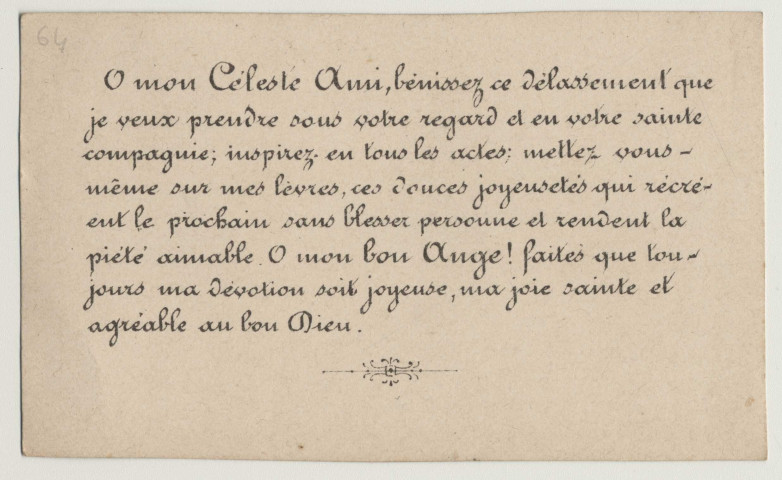 64
O mon Céleste Ami, bénissez ce délassement que
je veux prendre sous votre regard et en votre sainte
compagnie; inspirez-en tous les actes; mettez vous-
même sur mes lèvres, ces douces joyeusetés qui récré-
ent le prochain sans blesser personne et rendent la
piété aimable. O mon bon Ange! faites que tou-
jours ma dévotion soit joyeuse, ma joie sainte et
agréable au bon Dieu.